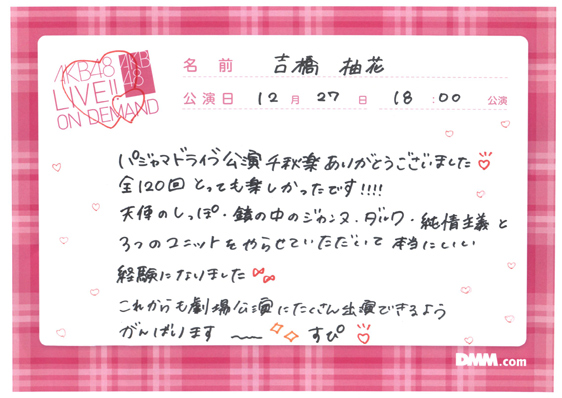 AKB48
LIVE!!
ON DEMAND
AKB
48
名前 吉橋 柚花
公演日 12月27日 18:00 公演
パジャマドライブ公演千秋楽ありがとうございました
全120回とっても楽しかったです!!!!
天使のしっぽ・鏡の中のジャンヌ・ダルク・純情主義と
3つのユニットをやらせていただいて本当にいい
経験になりました
これからも劇場公演にたくさん出演できるよう
がんばります 〜 すぴ
DMM.com